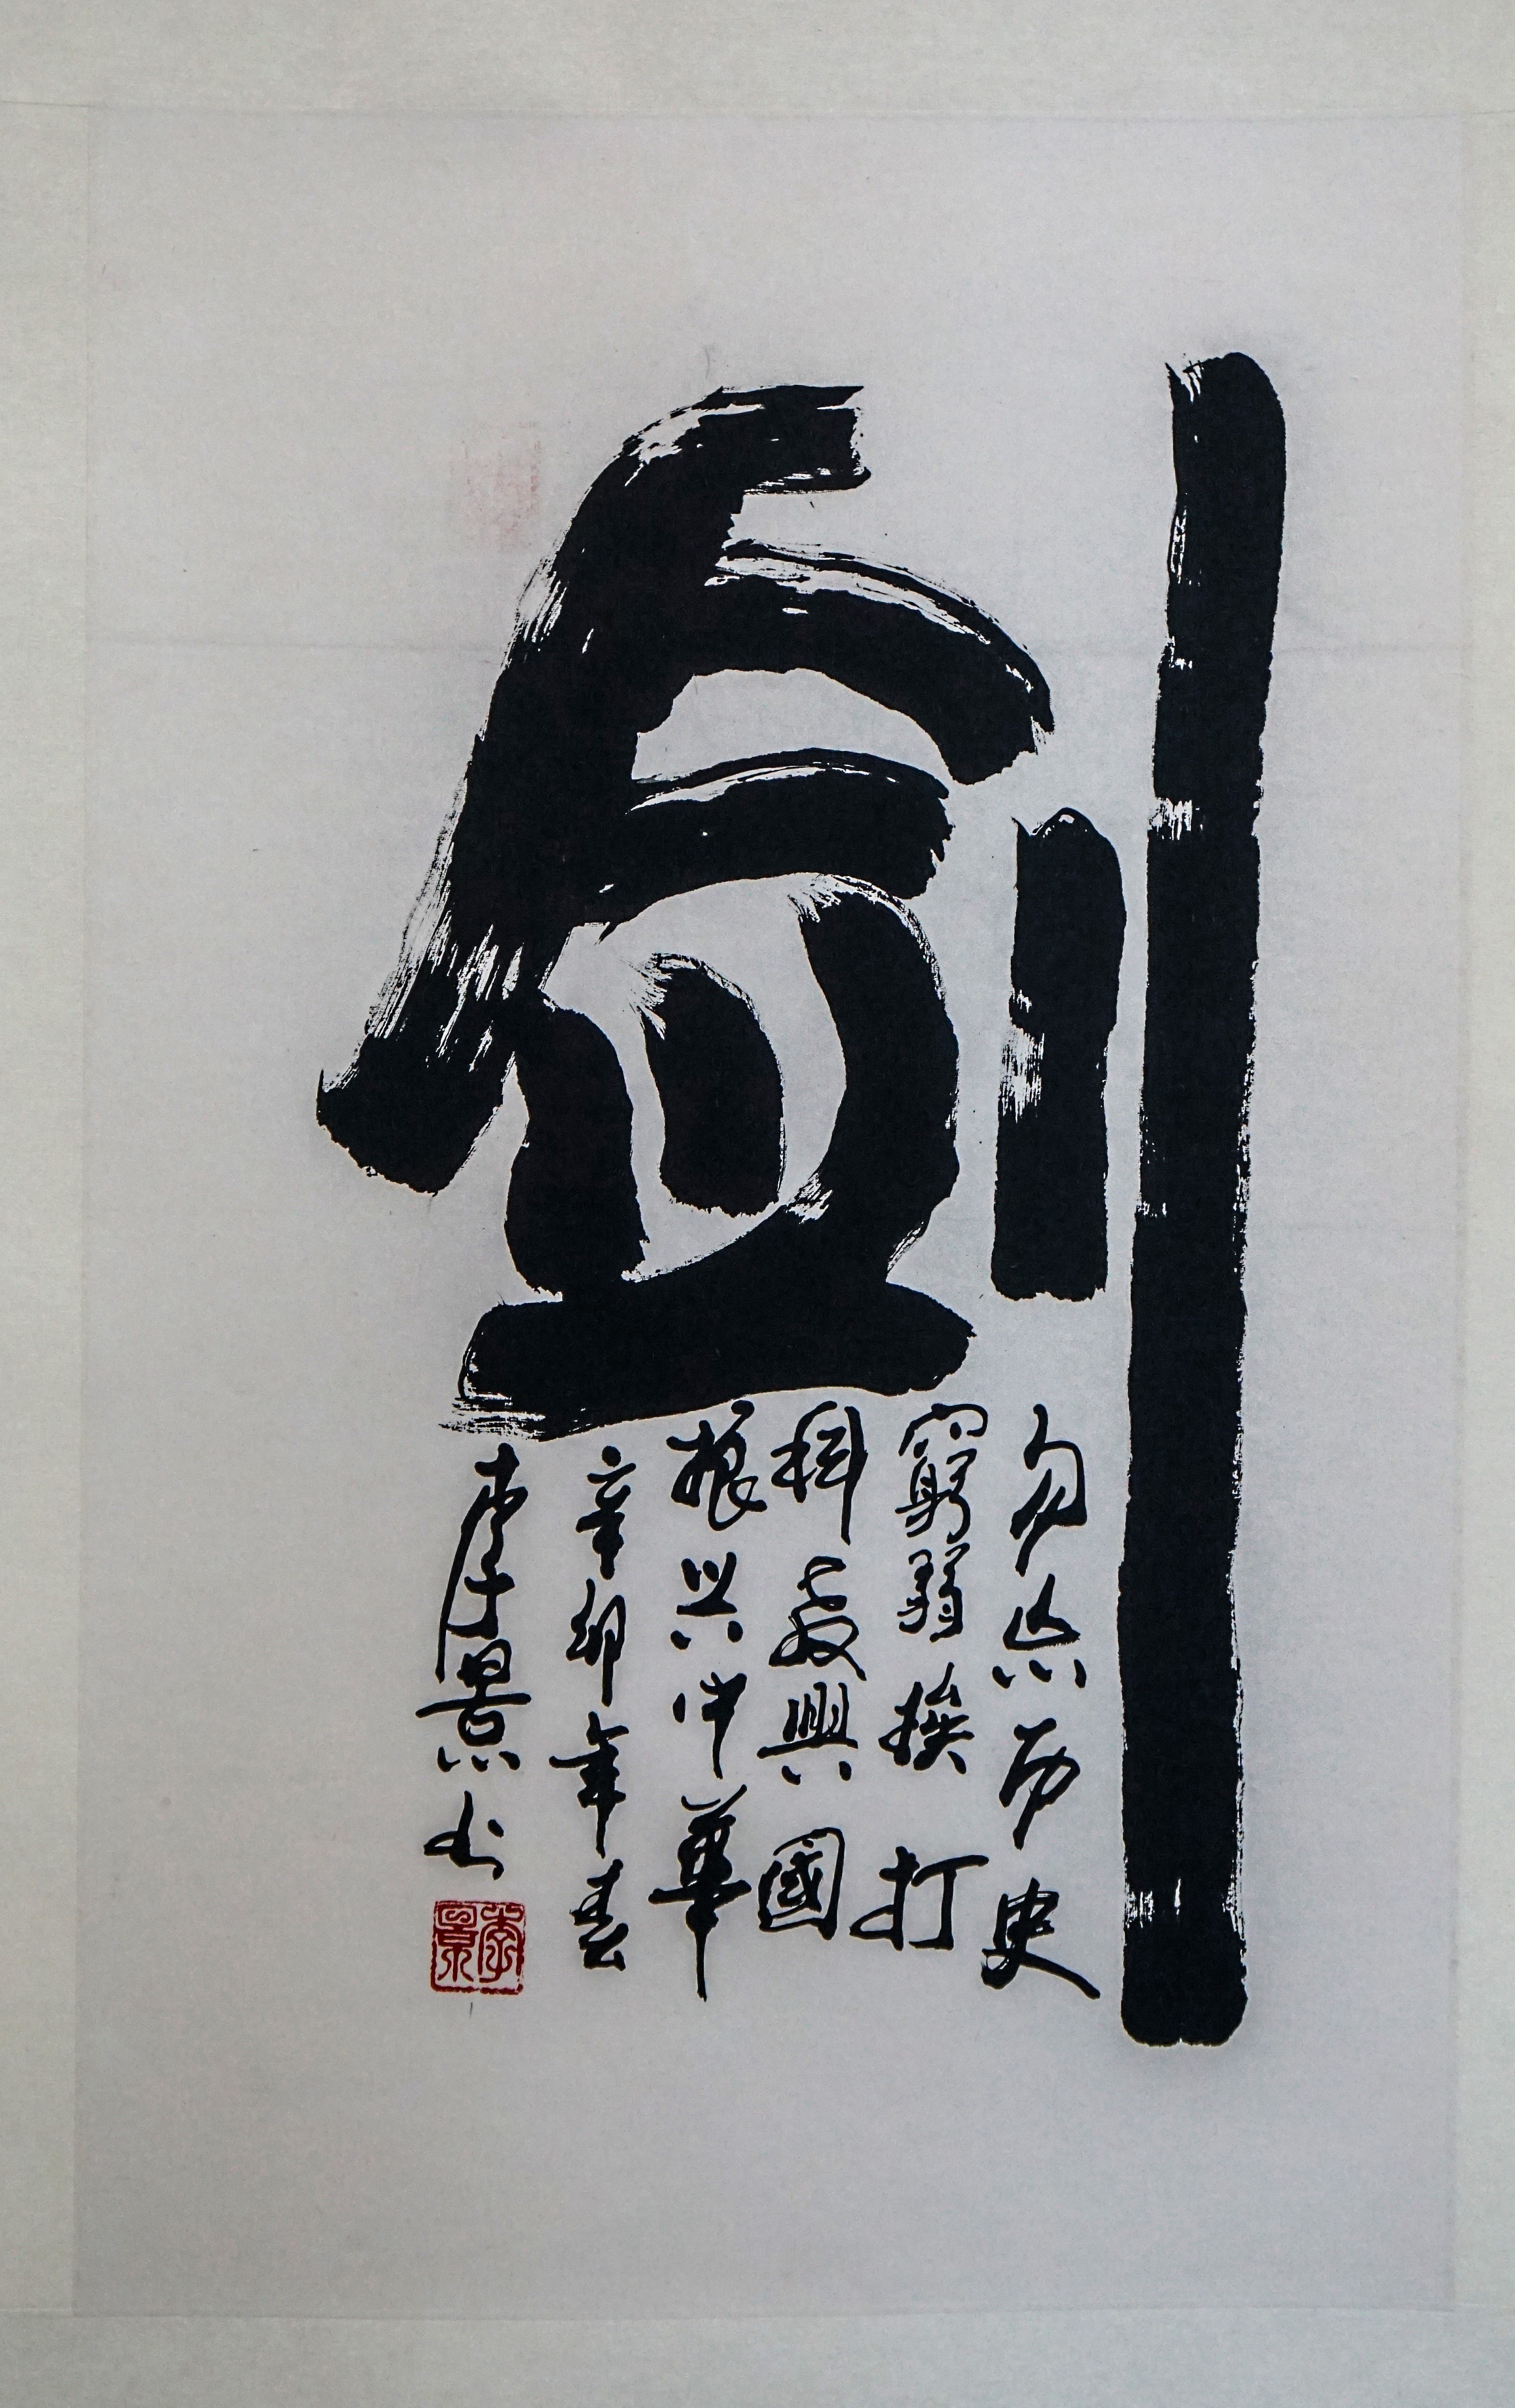 剑
勿忘历史
窮弱挨打
科教興國
振兴中華
辛卯年春
李景书
李景